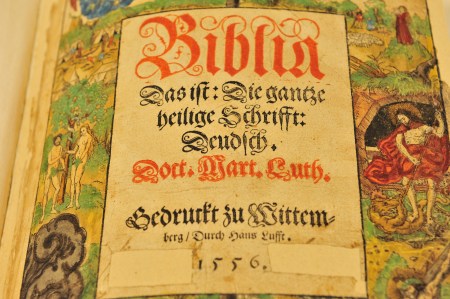 Biblia
Das ist: Die gantze
heilige Schrifft:
Deudsch.
Doct. Mart. Luth.
Gedruckt zu Wittem-
berg / Durch Hans Lufft.
1556.